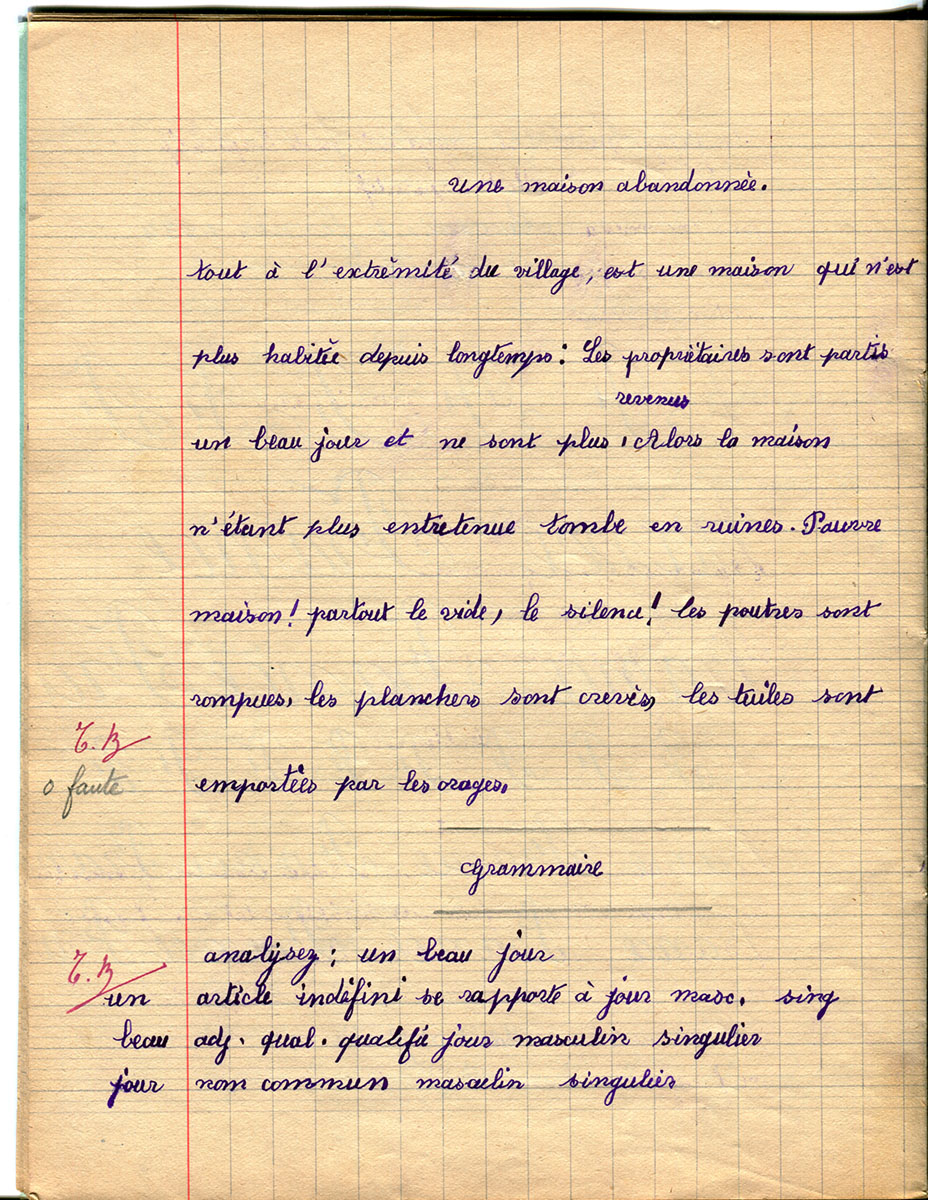 Une maison abandonnée.
tout à l'extrêmité du village, est une maison qui n'est
plus habitée depuis longtemps : Les propriétaires sont partis
revenus
un beau jour et ne sont plus. Alors la maison
n'étant plus entretenue tombe en ruines. Pauvre
maison ! partout le vide, le silence ! les poutres sont
rompues, les planchers sont crevés, les tuiles sont
T.B
0 faute emportées par les orages.
Grammaire
analysez : un beau jour
T.B
un article indéfini se rapporte à jour masc. sing
beau adj. qual. qualifie jour masculin singulier
jour nom commun masculin singulier